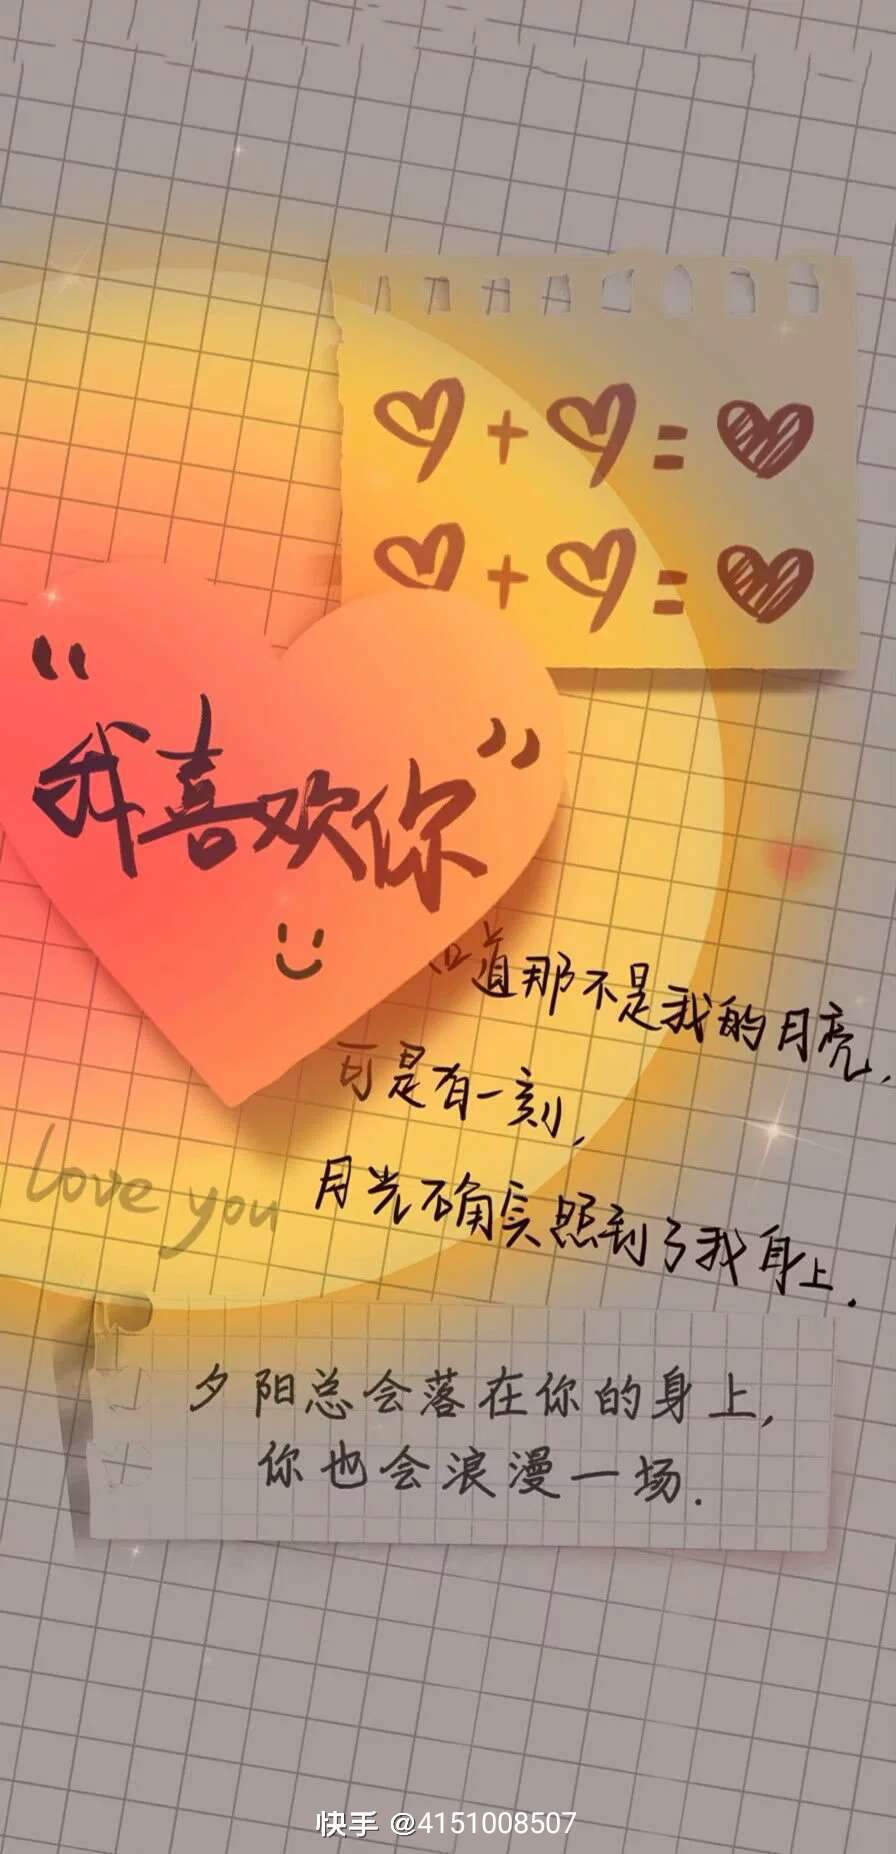 “我喜欢你”
道那不是我的月亮，
可是有一刻，
月光确实照到了我身上.
love you
夕阳总会落在你的身上，
你也会浪漫一场.
快手 @4151008507